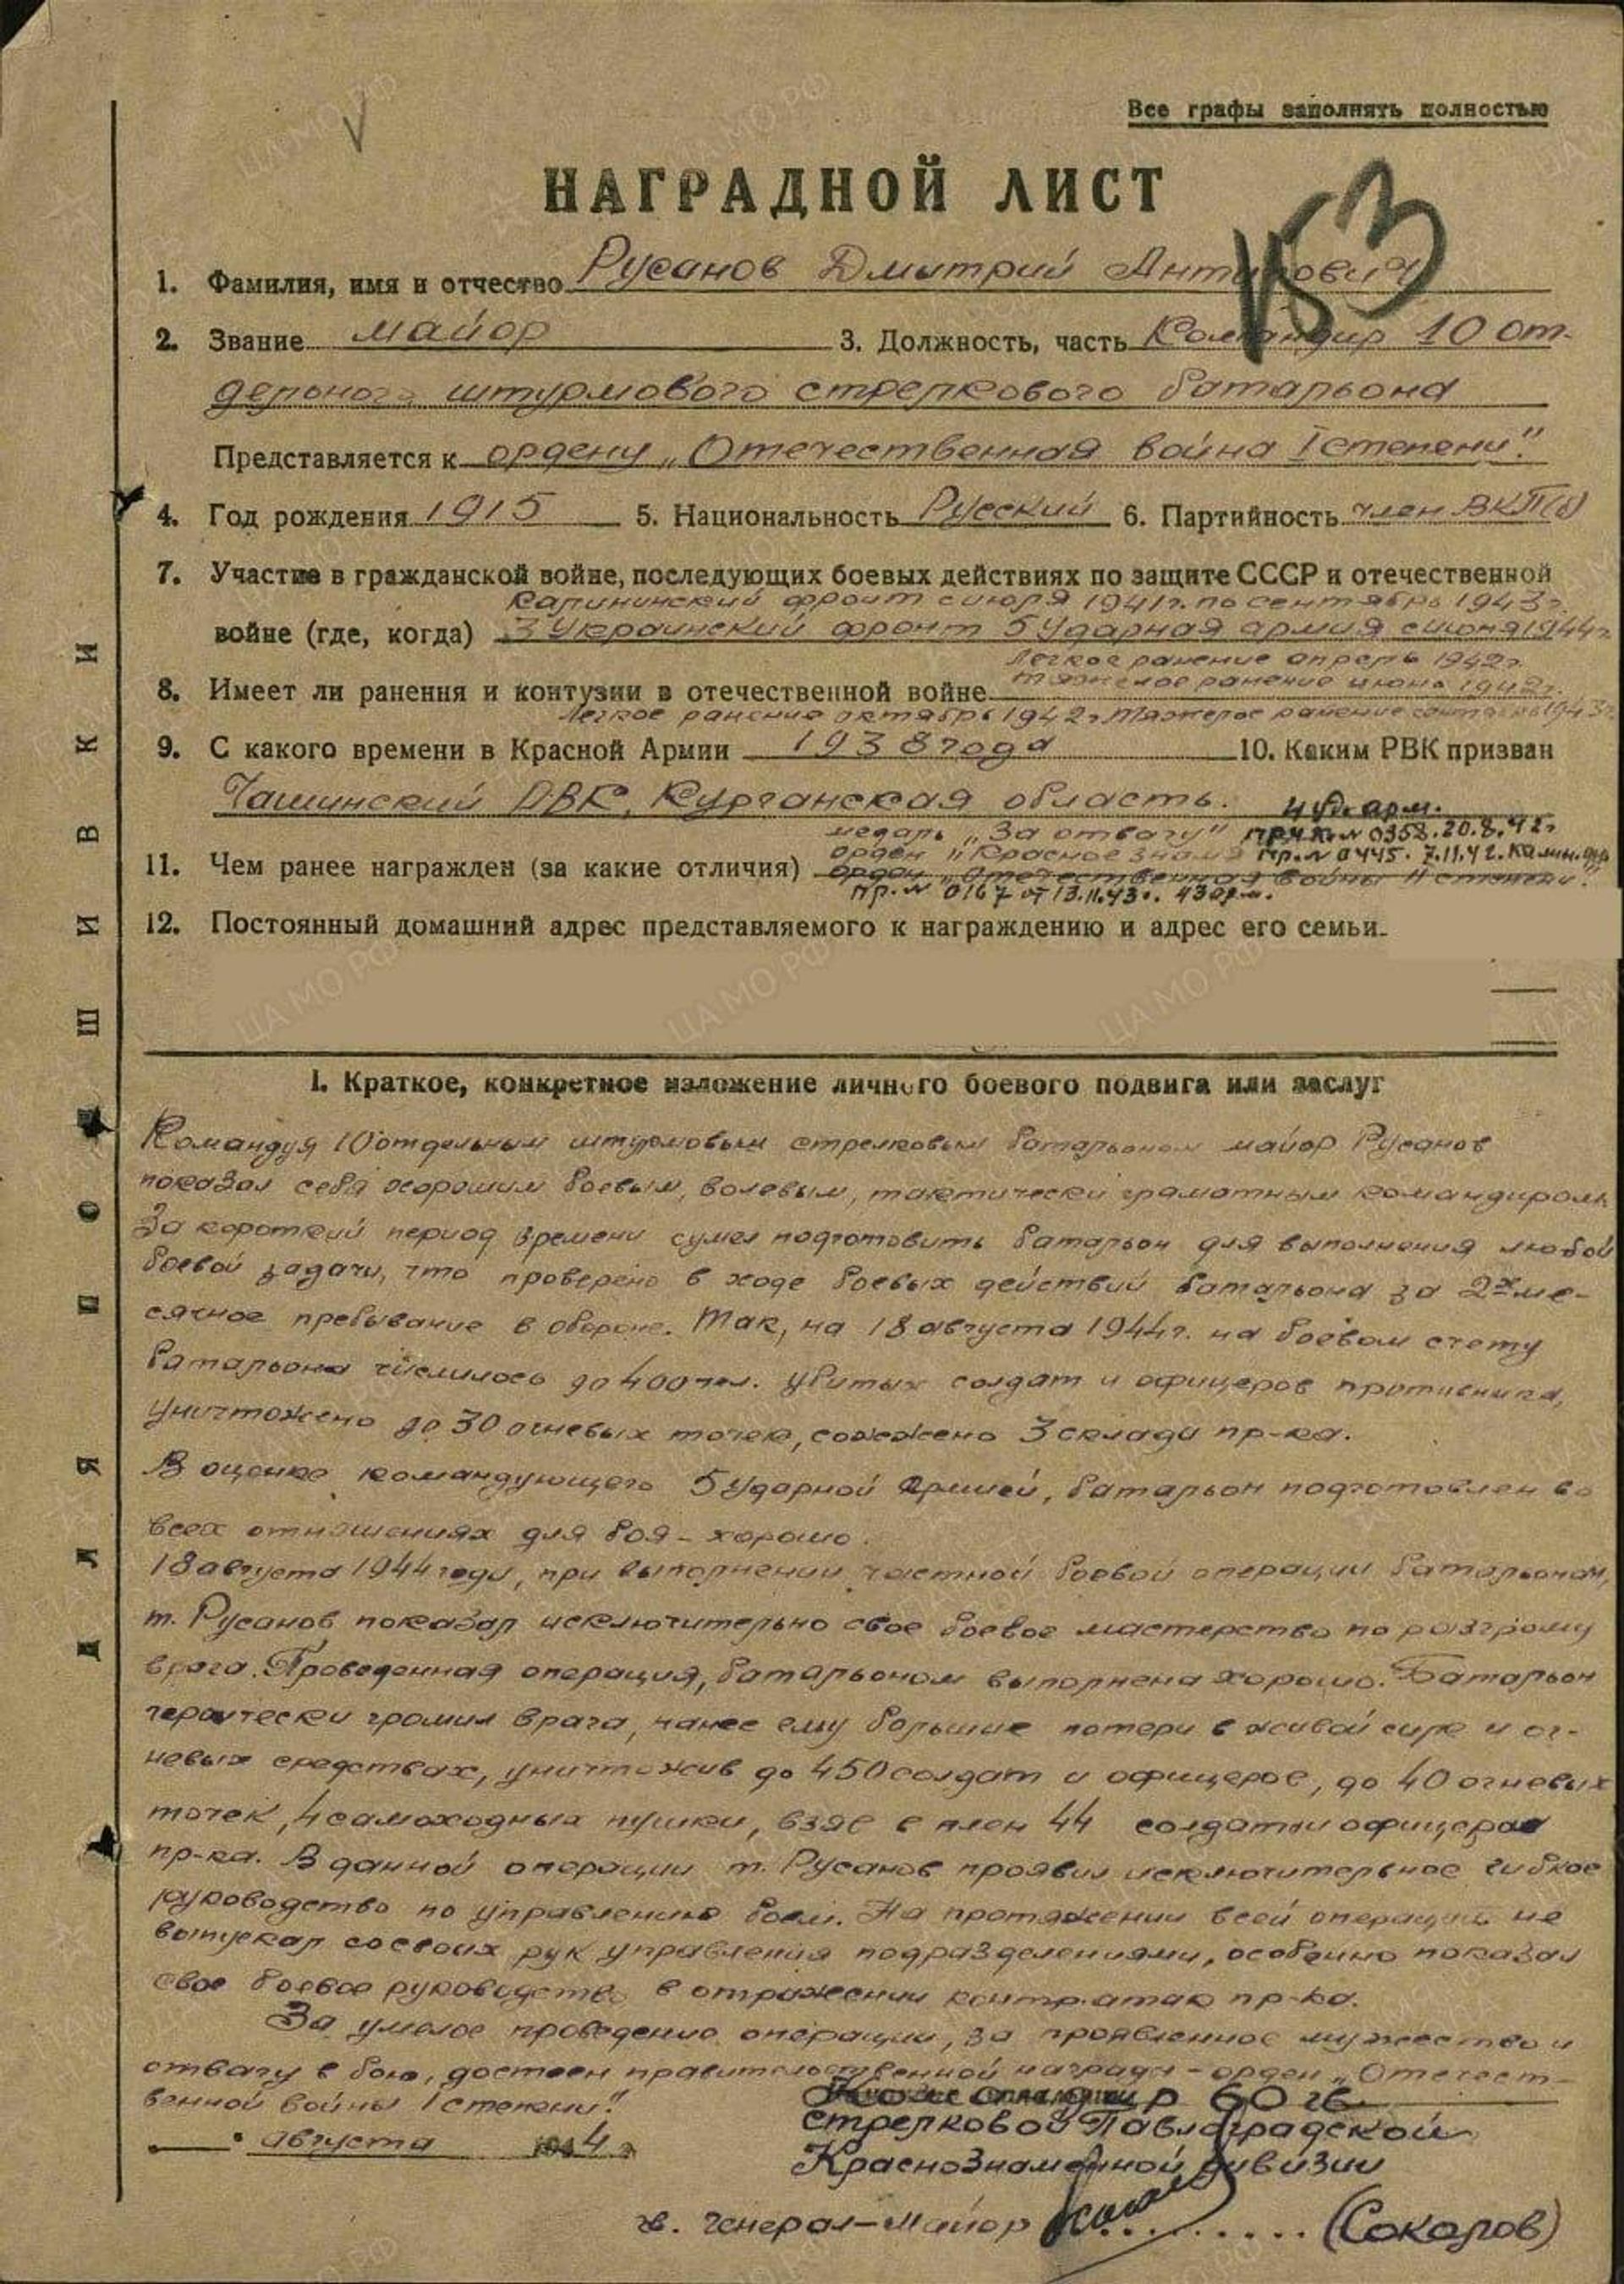 Все графы заполнять полностью
НАГРАДНОЙ ЛИСТ
153
1. Фамилия, имя и отчество Русанов Дмитрий Антипович
2. Звание майор 3. Должность, часть Командир 10 от-
дельного штурмового стрелкового батальона
Представляется к ордену „Отечественная война I степени".
4. Год рождения 1915 5. Национальность Русский 6. Партийность член ВКП(б)
7. Участие в гражданской войне, последующих боевых действиях по защите СССР и отечественной
Калининский фронт с июля 1941г. по сентябрь 1943г.
войне (где, когда) 3 Украинский фронт 5 Ударная армия с июня 1944г
Легкое ранение апрель 1942г.
8. Имеет ли ранения и контузии в отечественной войне тяжелое ранение июнь 1942г.
Легкое ранение октябрь 1942г. Тяжелое ранение сентябрь 1943г
9. С какого времени в Красной Армии 1938 года 10. Каким РВК призван
Чашинский РВК, Курганская область.
4 уд. арм.
медаль „За отвагу" пр. № 0358. 20.8.42г
орден „Красное знамя пр. № 0445. 7.11.42. Калин. фр
11. Чем ранее награжден (за какие отличия) орден „Отечественная войны II степени".
пр. № 0167 от 13.11.43г. 43 арм.
12. Постоянный домашний адрес представляемого к награждению и адрес его семьи
ДЛЯ ПОДШИВКИ
I. Краткое, конкретное изложение личного боевого подвига или заслуг
Командуя 10 отдельным штурмовым стрелковым батальоном майор Русанов
показал себя хорошим боевым, волевым, тактически грамотным командиром.
За короткий период времени сумел подготовить батальон для выполнения любой
боевой задачи, что проверено в ходе боевых действий батальона за 2х ме-
сячное пребывание в обороне. Так, на 18 августа 1944г. на боевом счету
батальона числилось до 400 чел. убитых солдат и офицеров противника,
уничтожено до 30 огневых точек, сожжено 3 склада пр-ка.
В оценке командующего 5 Ударной Армией, батальон подготовлен во
всех отношениях для боя - хорошо.
18 августа 1944 года, при выполнении частной боевой операции батальоном,
т. Русанов показал исключительно свое боевое мастерство по разгрому
врага. Проведенная операция, батальоном выполнена хорошо. Батальон
героически громил врага, нанес ему большие потери в живой силе и ог-
невых средствах, уничтожив до 450 солдат и офицеров, до 40 огневых
точек, 4 самоходных пушки, взяв в плен 44 солдата и офицера
пр-ка. В данной операции т. Русанов проявил исключительное гибкое
руководство по управлению боем. На протяжении всей операции не
выпускал со своих рук управления подразделениями, особенно показал
свое боевое руководство в отражении контр.атак пр-ка.
За умелое проведение операции, за проявленное мужество и
отвагу в бою, достоен правительственной награды - орден „Отечест-
венной войны I степени".
Командир 60 гв.
стрелковой Павлоградской
Краснознаменной дивизии
августа 1944 г
гв. генерал-майор (Соколов)
ЦАМО РФ